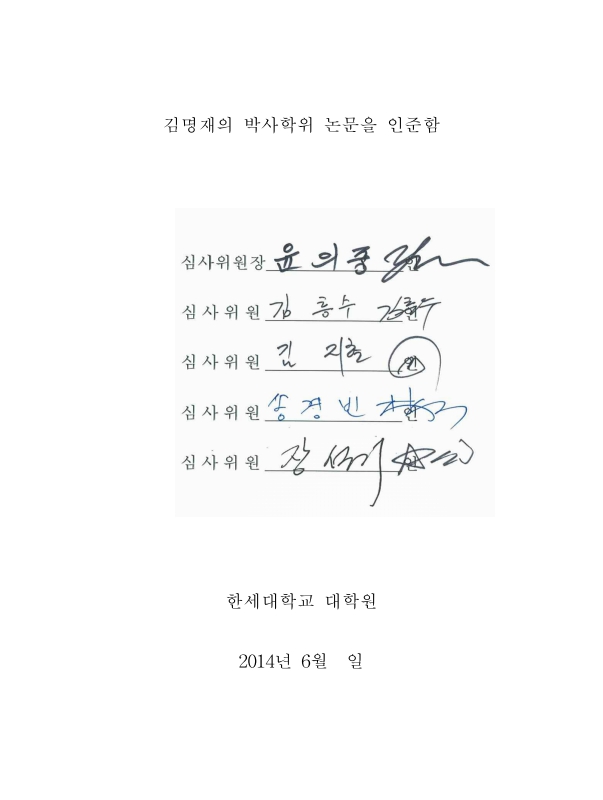 김명재의 박사학위 논문을 인준함
심사위원장 윤 의 중 인
심 사 위 원 김 흥 수 김흥수 인
심 사 위 원 김 지훈 인
심 사 위 원 송 경 빈 인
심 사 위 원 장 인
한세대학교 대학원
2014년 6월 일